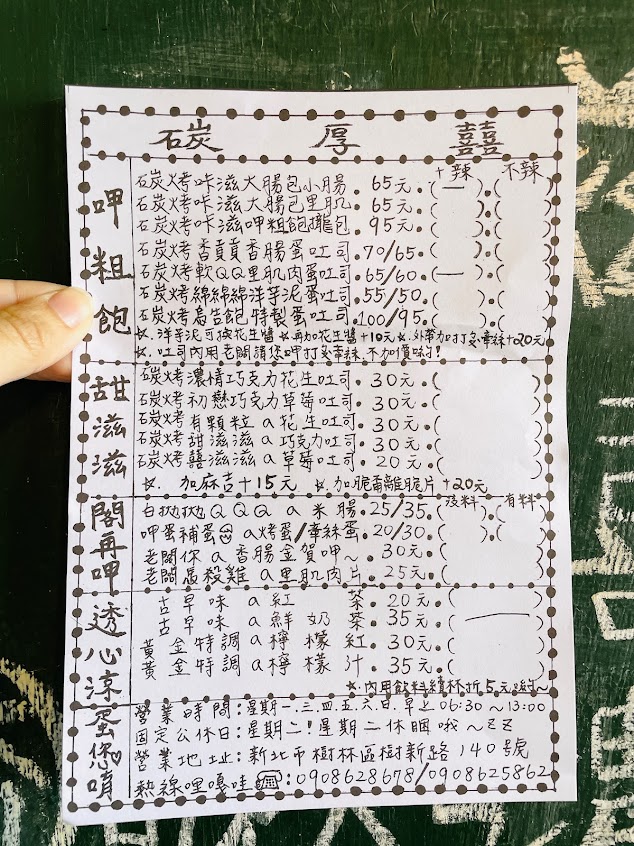 碳烤厚囍
＋辣 不辣
呷粗飽
碳烤咔滋大腸包小腸．65元．( )．( )
碳烤咔滋大腸包里肌．65元．( )．( )
碳烤咔滋呷粗飽攏包．95元．( )．( )
碳烤香貢貢香腸蛋吐司．70/65．( )．( )
碳烤軟QQ里肌肉蛋吐司．65/60．( )．( )
碳烤綿綿綿洋芋泥蛋吐司．55/50．( )．( )
碳烤厚告飽特製蛋吐司．100/95．( )．( )
☆．洋芋泥可換花生醬 ☆再加花生醬+10元☆．外帶加打拋牽絲+20元
☆．吐司內用老闆請您呀打拋牽絲．不加價呦！
甜滋滋
碳烤濃情巧克力花生吐司．30元．( )
碳烤初戀巧克力草莓吐司．30元．( )
碳烤有顆粒a花生吐司．30元．( )
碳烤甜滋滋a巧克力吐司．30元．( )
碳烤囍滋滋a草莓吐司．20元．( )
☆．加麻吉+15元 ☆．加脆脆片+20元
閣再呷
沒料 有料
白拋拋QQQa米腸．25/35．( )．( )
呷蛋補蛋a烤蛋/牽絲蛋．20/30．( )．( )
老闆你a香腸金賀呷～．30元．( )
老闆愚殺雞a里肌肉片．25元．( )
透心涼
古早味a紅茶．20元．( )
古早味a鮮奶茶．35元．( )
黃金特調a檸檬紅．30元．( )
黃金特調a檸檬汁．35元．( )
☆．內用飲料續杯折5元．呦～
蛋您唷♡
營業時間：星期一．三．四．五．六．日．早上06:30～13:00
固定公休日：星期二！星期二休睏哦～ZZ
營業地址：新北市樹林區樹新路140號
熱線哩嘎哇☎：0908628678/0908625862